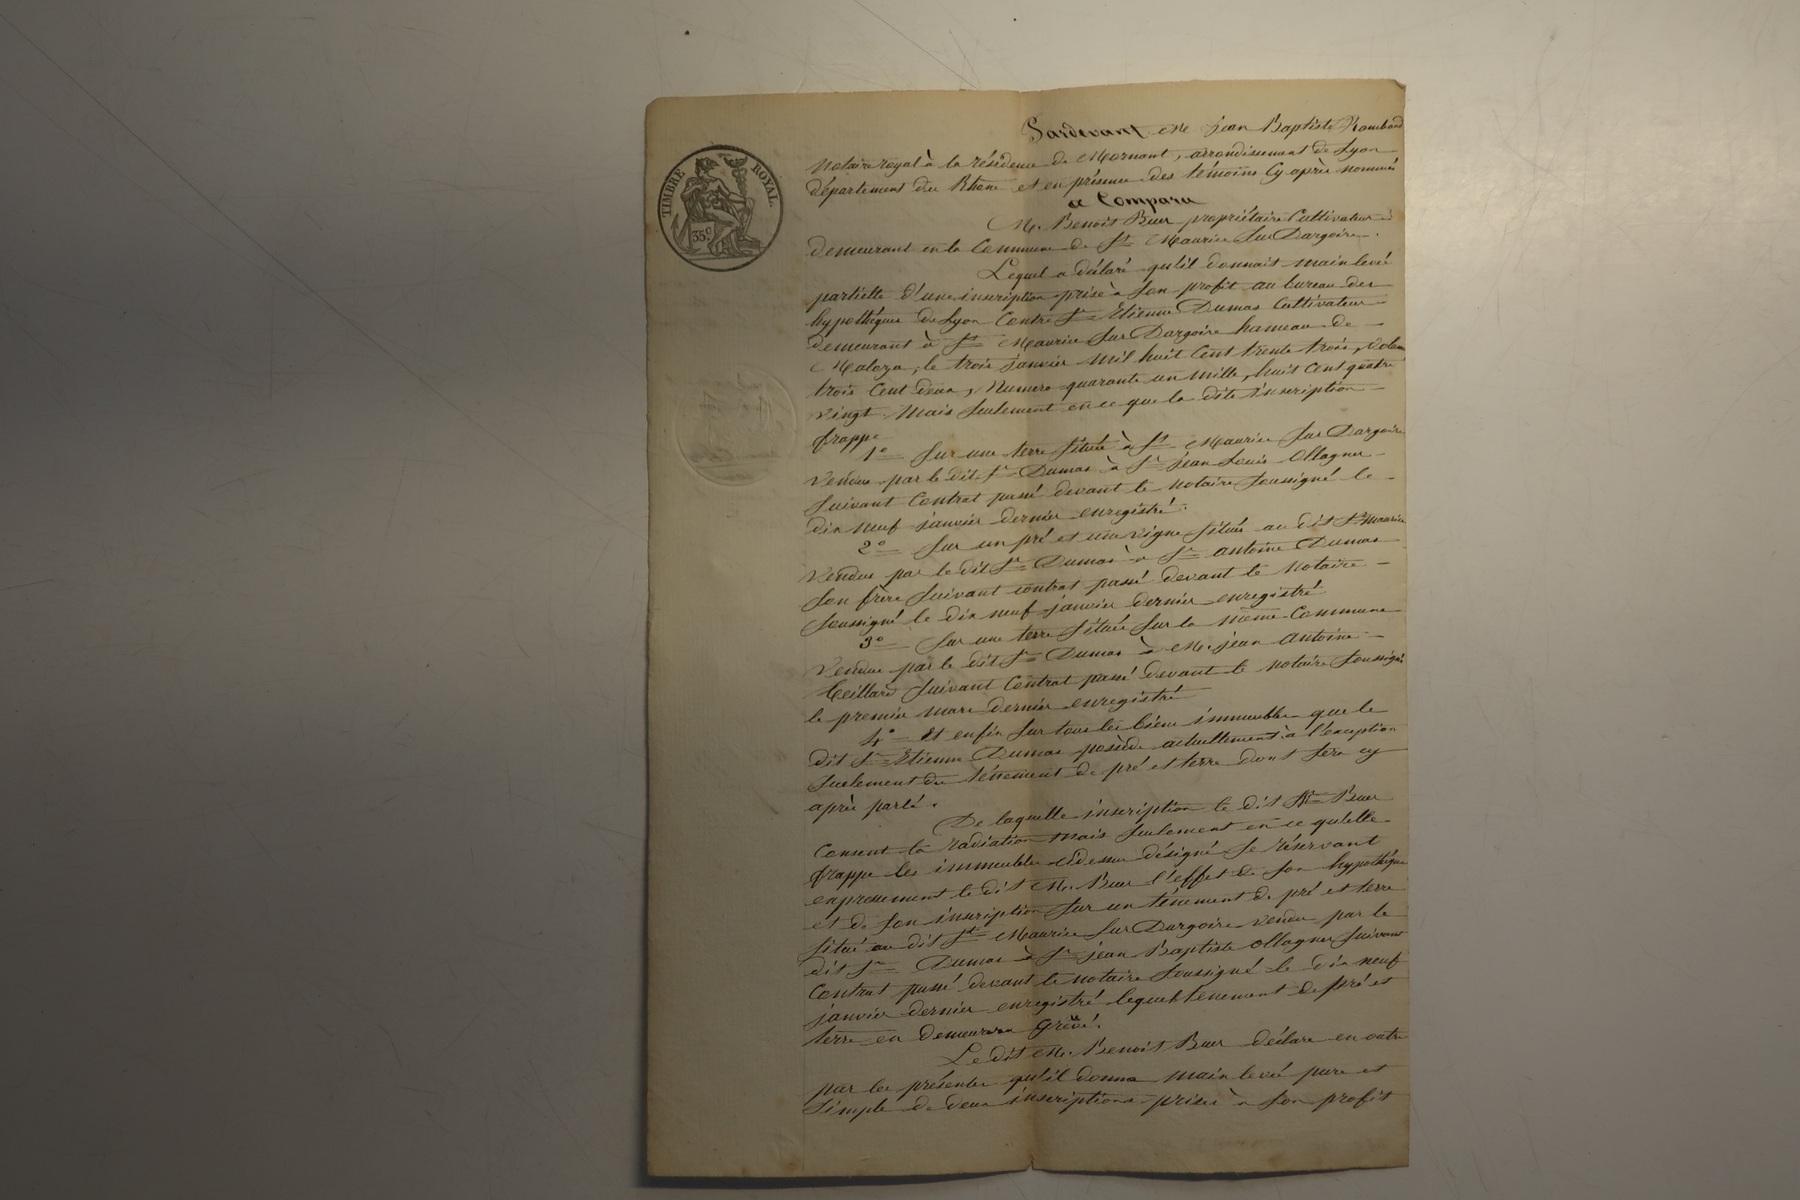 TIMBRE ROYAL.
35c
Pardevant Me jean Baptiste
Notaire royal à la résidence de Mornant, arrondissement de Lyon
département du Rhône et en présence des témoins cy après nommés
a Comparu
M. Benoit Buer propriétaire Cultivateur
demeurant en la Commune de St Maurice Sur Dargoire.
Lequel a déclaré qu'il donnait main levée
partielle d'une inscription prise à Son profit au bureau des
hypothèques de Lyon Contre Sr Etienne Dumas Cultivateur
demeurant à St Maurice Sur Dargoire hameau de
le trois janvier mil huit Cent trente trois, volume
trois Cent deux, Numero quarante un mille, huit Cent quatre
vingt. Mais Seulement en ce que la dite inscription
frappe
1o Sur une terre Située à St Maurice Sur Dargoire
vendue par le dit Sr Dumas à Sr jean Louis Ollagner
Suivant Contrat passé devant le Notaire Soussigné le
dix neuf janvier dernier enregistré.
2o Sur un pré et une vigne Située au dit St Maurice
Vendus par le dit Sr Dumas à Sr antoine Dumas
Son frère Suivant contrat passé devant le Notaire
Soussigné le dix neuf janvier dernier enregistré
3o Sur une terre Située Sur la même Commune
Vendue par le dit Sr Dumas à M. jean Antoine
Suivant Contrat passé devant le notaire Soussigné
le premier mars dernier enregistré
4o Et enfin Sur tous les biens immeubles que le
dit Sr Etienne Dumas possède actuellement à l'exception
Seulement du ténement de pré et terre dont Sera cy
après parlé.
De laquelle inscription le dit Buer
Consent la radiation Mais Seulement en ce qu'elle
frappe les immeubles cidessus désigné Se réservant
expressement le dit M. Buer l'effet de Son hypothèque
et de Son inscription Sur un ténement de pré et terre
Situé au dit St Maurice Sur Dargoire vendu par le
dit Sr Dumas à Sr jean Baptiste Ollagner Suivant
Contrat passé devant le notaire Soussigné le dix neuf
janvier dernier enregistré lequel tenement de pré et
terre en demeurera Grévé.
Le dit M. Benoit Buer déclare en outre
par les présentes qu'il donne main levée pure et
Simple de deux inscriptions prises à Son profit